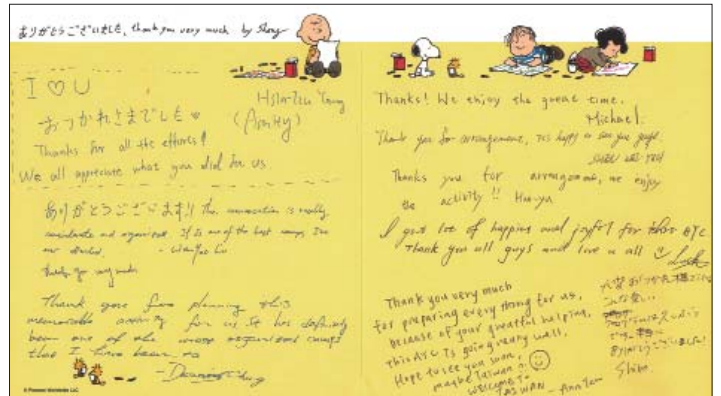 ありがとうございました, thank you very much by Sheng
I ♡ U
Hsin-Tzu
おつかれさまでした ♥
Thanks for all the efforts!
We all appreciate what you did for us
ありがとうございます!! The communication is really
considerate and organized. It is one of the best camps I've
ever attended.
thank you very much
Thank you for planning this
memorable activity for us. It has definitely
been one of the most organized camps
that I have been to
Thanks! We enjoy the great time.
Michael
Thank you for arrangement, it's happy to see you guys.
Thanks you for arrangement, we enjoy
the activity!!
I got lot of happies and joyful for this AYC
Thank you all guys and love u all
Thank you very much
for preparing every thing for us,
because of your greatful helping,
this is going very well,
Hope to see you soon,
maybe Taiwan
WELCOME TO
TAIWAN
ありがとうございました!